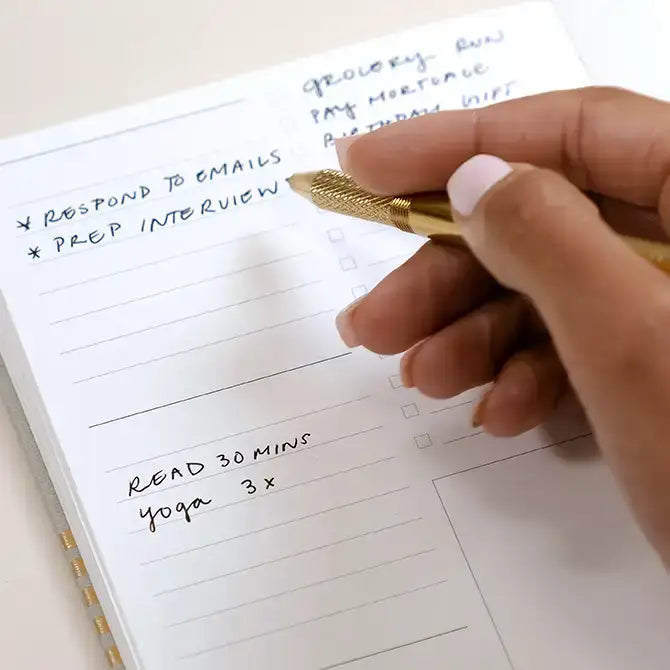 GROCERY RUN
PAY MORTGAGE
BIRTHDAY GIFT
* RESPOND TO EMAILS
* PREP INTERVIEW
READ 30 MINS
yoga 3x